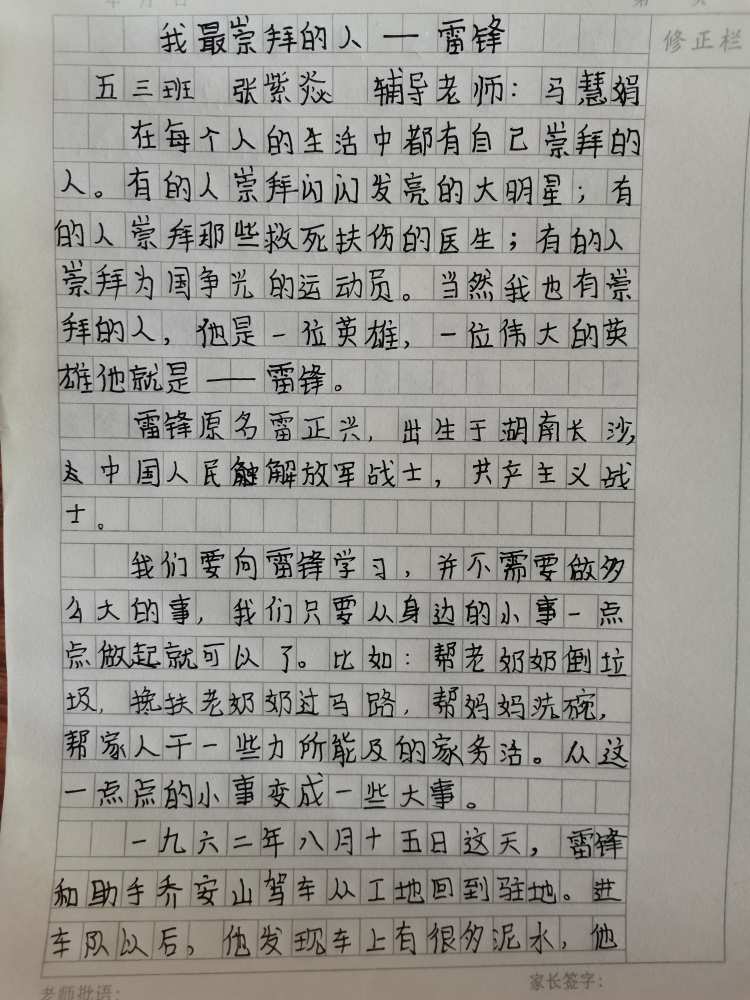 年 月 日 第 页
我最崇拜的人——雷锋
修正栏
五三班 张紫焱 辅导老师：马慧娟
在每个人的生活中都有自己崇拜的
人。有的人崇拜闪闪发亮的大明星；有
的人崇拜那些救死扶伤的医生；有的人
崇拜为国争光的运动员。当然我也有崇
拜的人，他是一位英雄，一位伟大的英
雄他就是——雷锋。
雷锋原名雷正兴，出生于湖南长沙，
中国人民解放军战士，共产主义战
士。
我们要向雷锋学习，并不需要做多
么大的事，我们只要从身边的小事一点
点做起就可以了。比如：帮老奶奶倒垃
圾，搀扶老奶奶过马路，帮妈妈洗碗，
帮家人干一些力所能及的家务活。从这
一点点的小事变成一些大事。
一九六二年八月十五日这天，雷锋
和助手乔安山驾车从工地回到驻地。进
车队以后，他发现车上有很多泥水，他
老师批语：
家长签字：